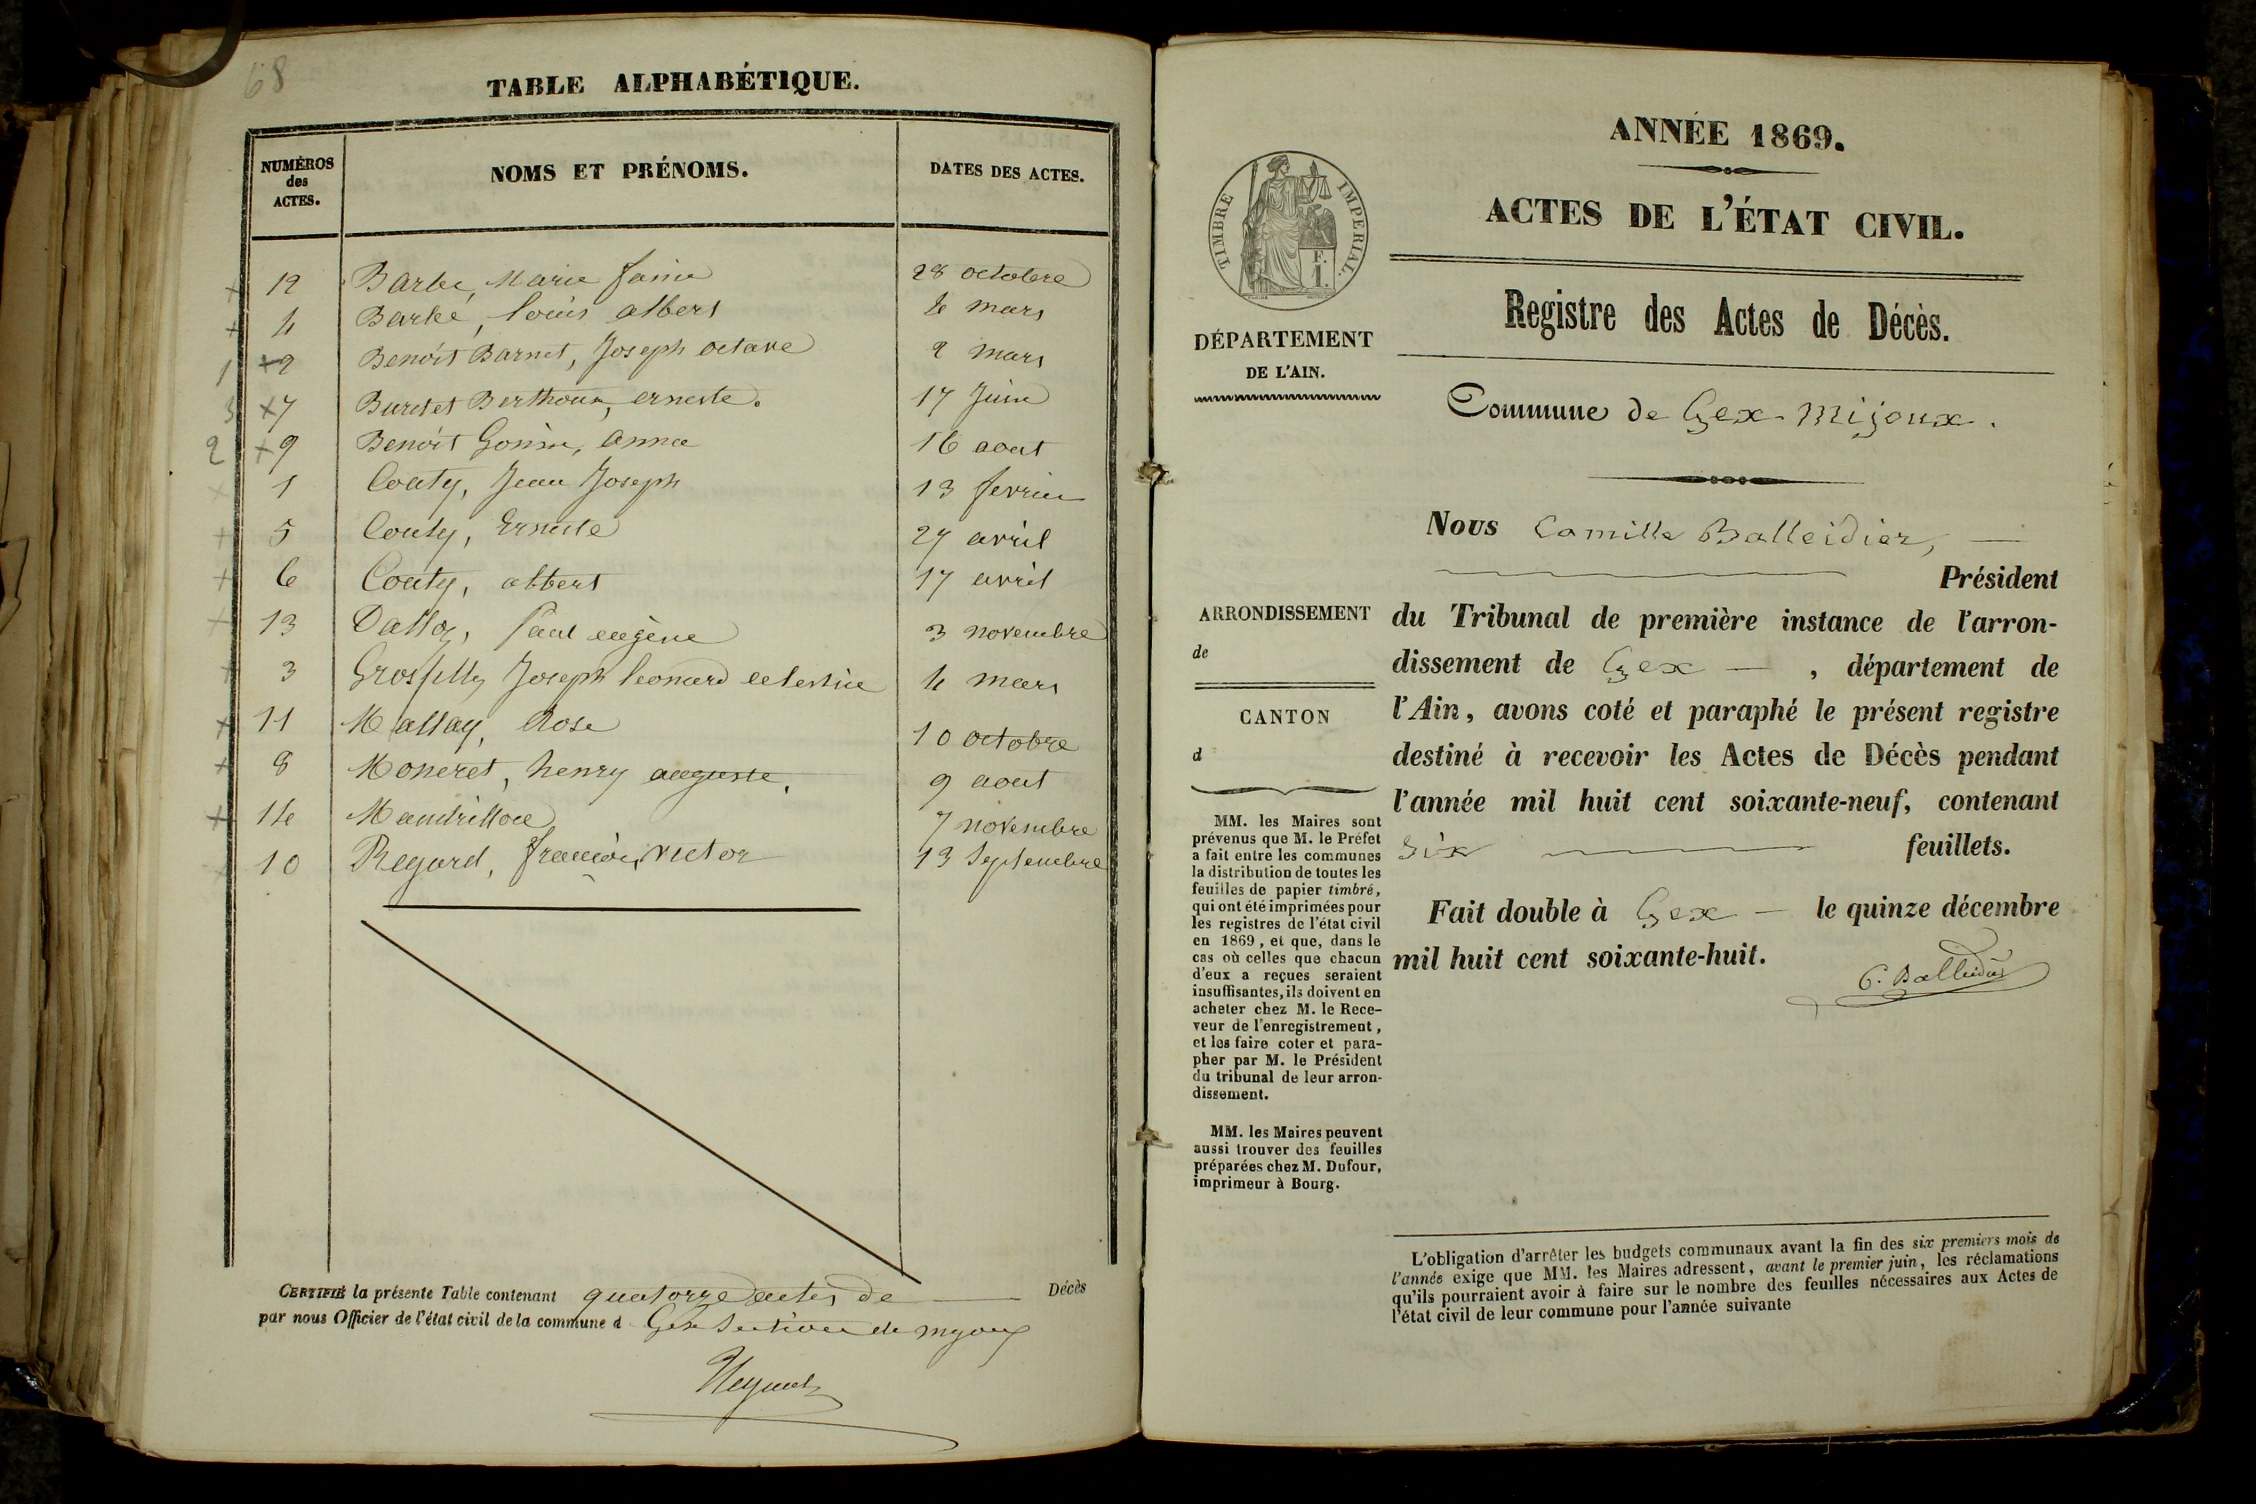 68
TABLE ALPHABÉTIQUE.
NUMÉROS des ACTES. NOMS ET PRÉNOMS. DATES DES ACTES.
12 Barbe, Marie 28 octobre
4 Barbe, Louis albert 4 mars
1 2 Benoit Barnet, Joseph octave 2 mars
3 7 Burdet Berthoux, erneste. 17 Juin
2 9 Benoit Gonin, anna 16 aout
1 Couty, Jean Joseph 13 fevrier
5 Couty, Erneste 27 avril
6 Couty, albert 17 avril
13 Dalloz, Paul eugène 3 novembre
3 Grosfilley Joseph leonard celestin 4 mars
11 Mallay, Rose 10 octobre
8 Moneret, henry auguste. 9 aout
14 Mandrillon 7 novembre
10 Regard, françois victor 13 Septembre
CERTIFIÉ la présente Table contenant quatorze actes de Décès
par nous Officier de l'état civil de la commune d Gex Section de mijoux
ANNÉE 1869.
ACTES DE L'ÉTAT CIVIL.
Registre des Actes de Décès.
Commune de Gex-Mijoux.
TIMBRE IMPERIAL.
F.
1.
DÉPARTEMENT
DE L'AIN.
ARRONDISSEMENT
de
CANTON
d
MM. les Maires sont
prévenus que M. le Préfet
a fait entre les communes
la distribution de toutes les
feuilles de papier timbré,
qui ont été imprimées pour
les registres de l'état civil
en 1869, et que, dans le
cas où celles que chacun
d'eux a reçues seraient
insuffisantes, ils doivent en
acheter chez M. le Rece-
veur de l'enregistrement,
et les faire coter et para-
pher par M. le Président
du tribunal de leur arron-
dissement.
MM. les Maires peuvent
aussi trouver des feuilles
préparées chez M. Dufour,
imprimeur à Bourg.
Nous Camille Balleidier, —
Président
du Tribunal de première instance de l'arron-
dissement de Gex — , département de
l'Ain, avons coté et paraphé le présent registre
destiné à recevoir les Actes de Décès pendant
l'année mil huit cent soixante-neuf, contenant
six feuillets.
Fait double à Gex — le quinze décembre
mil huit cent soixante-huit.
C. Balleidier
L'obligation d'arrêter les budgets communaux avant la fin des six premiers mois de
l'année exige que MM. les Maires adressent, avant le premier juin, les réclamations
qu'ils pourraient avoir à faire sur le nombre des feuilles nécessaires aux Actes de
l'état civil de leur commune pour l'année suivante